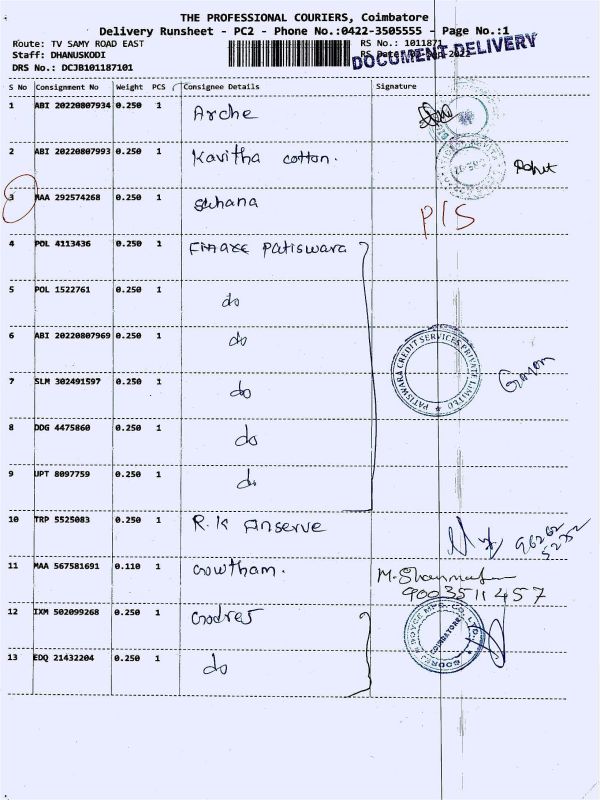 THE PROFESSIONAL COURIERS, Coimbatore
Delivery Runsheet - PC2 - Phone No.:0422-3505555 - Page No.:1
Route: TV SAMY ROAD EAST RS No.: 1011871
Staff: DHANUSKODI RS Date:
DRS No.: DCJB101187101
DOCUMENT DELIVERY
S No Consignment No Weight PCS Consignee Details Signature
1 ABI 20220807934 0.250 1 Arche
2 ABI 20220807993 0.250 1 Kavitha cotton.
3 MAA 292574268 0.250 1 Suhana P/S
4 POL 4113436 0.250 1 Patiswara
5 POL 1522761 0.250 1 do
6 ABI 20220807969 0.250 1 do
7 SLM 302491597 0.250 1 do
PATISWARA CREDIT SERVICES PRIVATE LIMITED
8 DDG 4475860 0.250 1 do
9 UPT 8097759 0.250 1 do
10 TRP 5525083 0.250 1 R.K Anserve
11 MAA 567581691 0.110 1 Gowtham.
9003511457
12 IXM 502099268 0.250 1 Godrej
GODREJ & BOYCE MFG. CO. LTD. COIMBATORE
13 EDQ 21432204 0.250 1 do